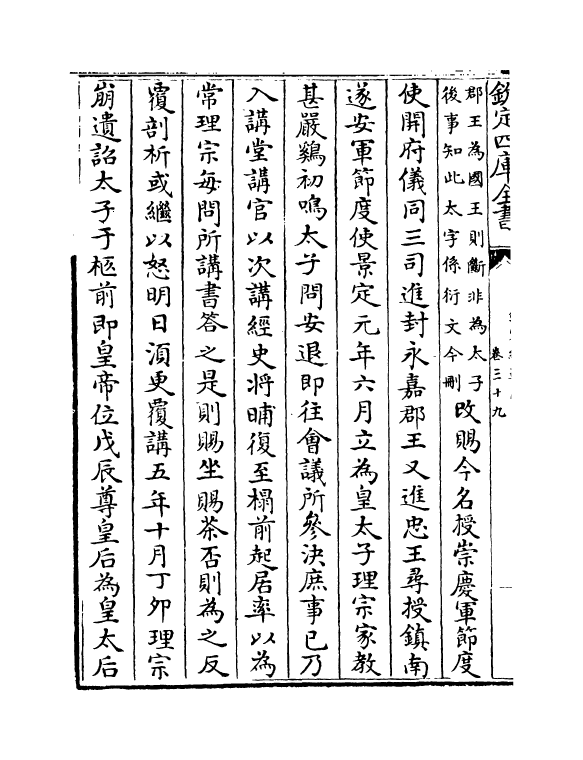 欽定四庫全書
卷三十九
郡王為國王則斷非為太子
後事知此太字係衍文今刪
改賜今名授崇慶軍節度
使開府儀同三司進封永嘉郡王又進忠王尋授鎮南
遂安軍節度使景定元年六月立為皇太子理宗家教
甚嚴鷄初鳴太子問安退即往會議所參決庶事已乃
入講堂講官以次講經史將晡復至榻前起居率以為
常理宗每問所講書答之是則賜坐賜茶否則為之反
覆剖析或繼以怒明日湏更覆講五年十月丁夘理宗
崩遺詔太子于柩前即皇帝位戊辰尊皇后為皇太后